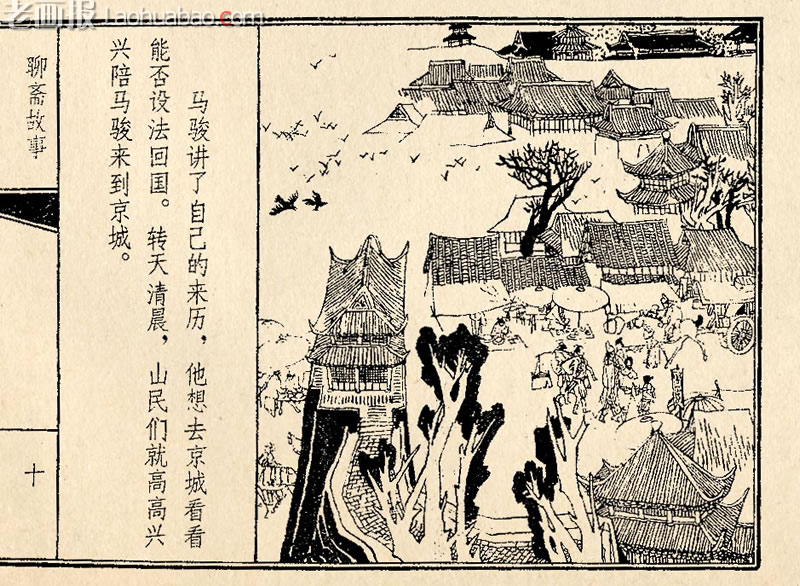 老画报 Laohuabao.com
马骏讲了自己的来历，他想去京城看看
能否设法回国。转天清晨，山民们就高高兴
兴陪马骏来到京城。
聊斋故事
十